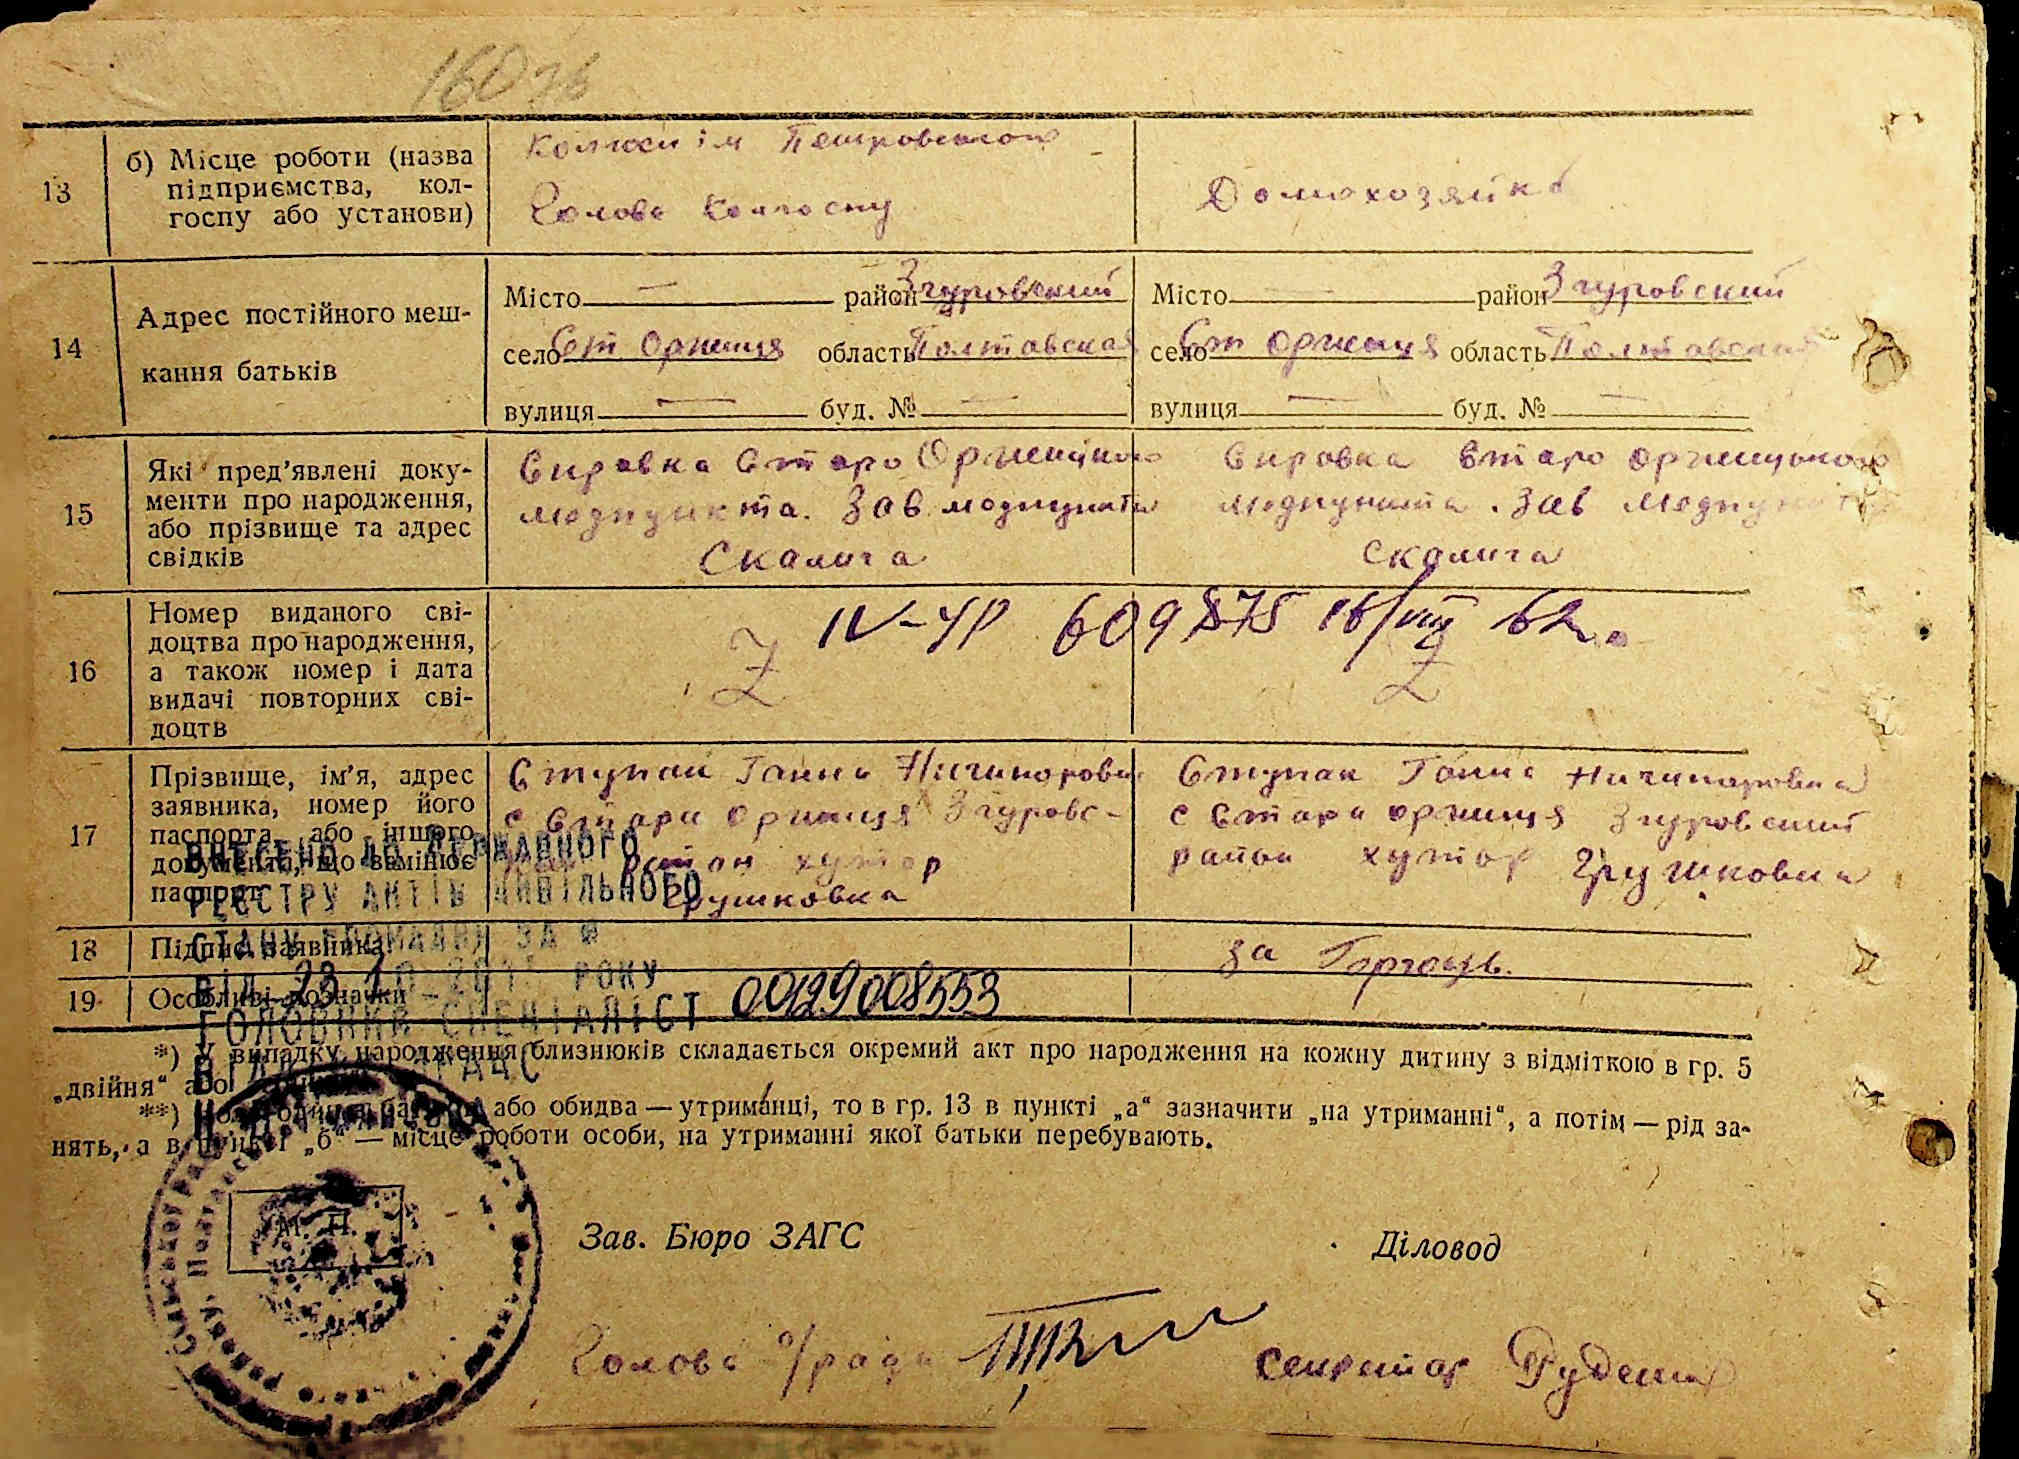 160 зв
13
б) Місце роботи (назва
підприємства, кол-
госпу або установи)
Колгосп ім Петровського
Голова колгоспу
Домохозяйка
14
Адрес постійного меш-
кання батьків
Місто — район Згуровский
село Ст Оржиця область Полтавская
вулиця — буд. № —
Місто — район Згуровский
село Ст Оржиця область Полтавская
вулиця — буд. № —
15
Які пред’явлені доку-
менти про народження,
або прізвище та адрес
свідків
Справка Старо Оржицького
медпункта. Зав медпункта
Скалига
Справка Старо Оржицького
медпункта. Зав медпункта
Скалига
16
Номер виданого сві-
доцтва про народження,
а також номер і дата
видачі повторних сві-
доцтв
IV-УР 609875 16/VIII 62г.
17
Прізвище, ім’я, адрес
заявника, номер його
паспорта або іншого
документа, що замінює
паспорт
Ступак Ганна Ничипоровна
с Стара Оржиця Згуровс-
район хутор
Грушковка
Ступак Ганна Ничипоровна
с Стара Оржиця Згуровский
район хутор Грушковка
18
Підпис заявника
за Горгоць.
19
Особливі позначки
00129008553
ВНЕСЕНО ДО ДЕРЖАВНОГО
РЕЄСТРУ АКТІВ ЦИВІЛЬНОГО
СТАНУ ГРОМАДЯН ЗА №
ВІД 23 РОКУ
ГОЛОВНИЙ СПЕЦІАЛІСТ
*) У випадку народження близнюків складається окремий акт про народження на кожну дитину з відміткою в гр. 5
„двійня“ або
**) або обидва — утриманці, то в гр. 13 в пункті „а“ зазначити „на утриманні“, а потім — рід за-
нять, а в пункті „б“ — місце роботи особи, на утриманні якої батьки перебувають.
М. П.
Зав. Бюро ЗАГС
Діловод
Голова с/ради
секретар Руденко